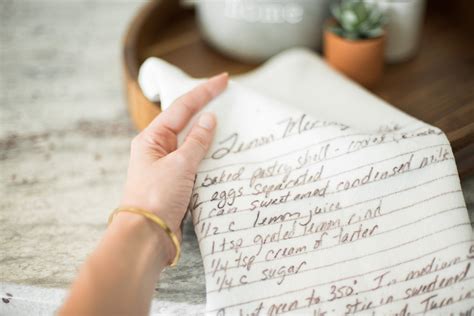 Home
Lemon Mering
baked pastry shell - cool
2 eggs separated
1 can sweetened condensed milk
1/2 c lemon juice
1 tsp grated lemon rind
1/4 tsp cream of tarter
1/4 c sugar
oven to 350°. In medium
stir in sweeten